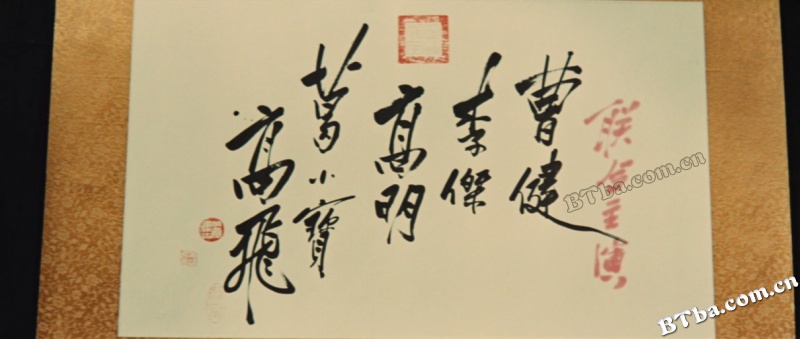 联合主演
曹健
李傑
高明
葛小寳
高飛
BTba.com.cn
BTba.com.cn